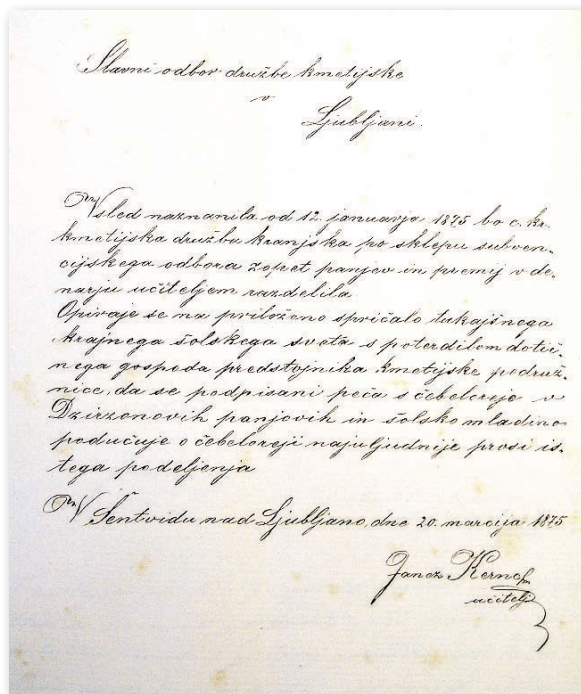 Slavni odbor družbe kmetijske
v
Ljubljani.
Vsled naznanila od 12. januarja 1875 bo c. kr.
kmetijska družba kranjska po sklepu subven-
cijskega odbora zopet panjev in premij v de-
narju učiteljem razdelila
Opiraje se na priloženo spričalo tukajšnega
krajnega šolskega sveta s poterdilom dotič-
nega gospoda predstojnika kmetijske podruž-
nice, da se podpisani peča s čebelorejo v
Dzirzonovih panjovih in šolsko mladino
podučuje o čebeloreji najuljudnije prosi is-
tega podeljenja
V Šentvidu nad Ljubljano, dne 20. marcija 1875
Janez
učitelj